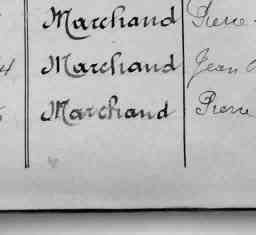 Marchand Pierre
4 Marchand Jean
Marchand Pierre